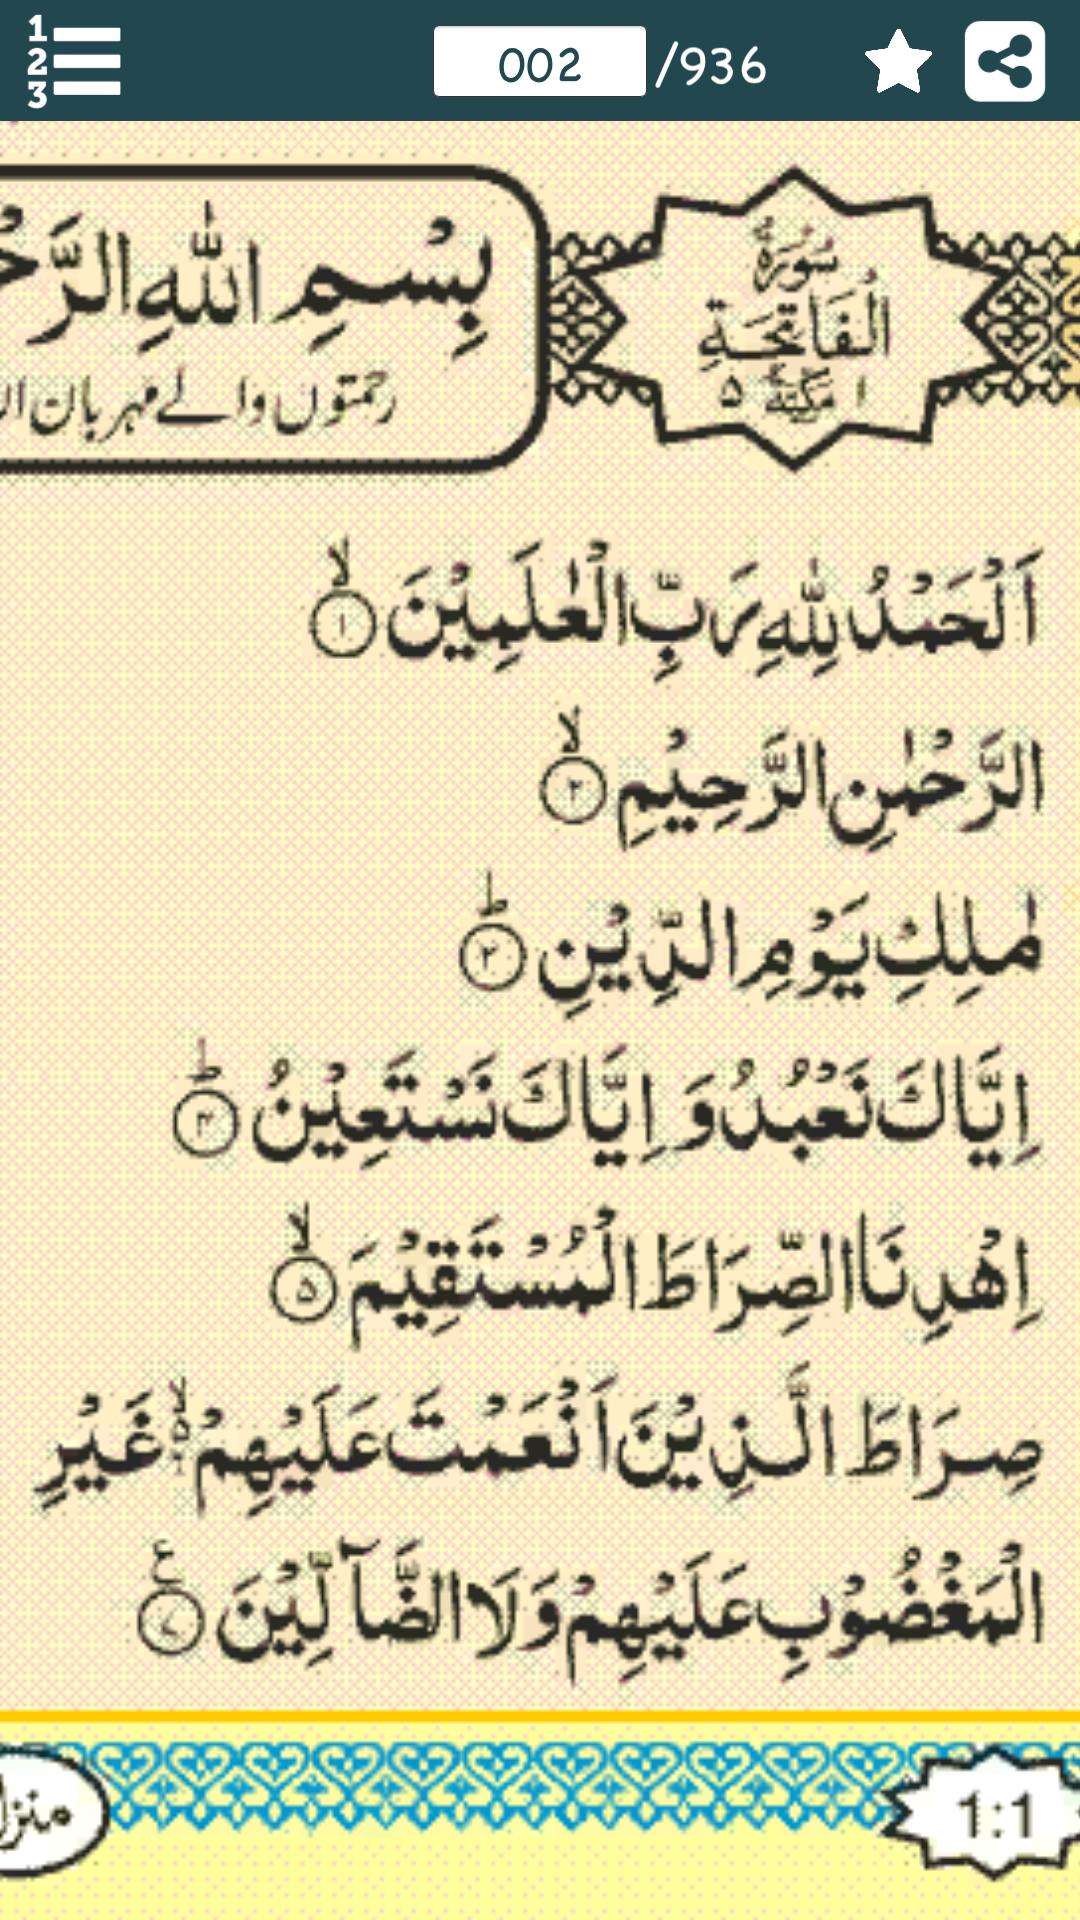 1
2
3
002 /936
سُوْرَةُ
الْفَاتِحَةِ
١ مَكِّيَّةٌ ٥
بِسْمِ اللّٰهِ الرَّ
رحمتوں والے مہربان
اَلْحَمْدُ لِلّٰهِ رَبِّ الْعٰلَمِيْنَ ۙ ١
الرَّحْمٰنِ الرَّحِيْمِ ۙ ٢
مٰلِكِ يَوْمِ الدِّيْنِ ؕ ٣
اِيَّاكَ نَعْبُدُ وَ اِيَّاكَ نَسْتَعِيْنُ ؕ ٤
اِهْدِنَا الصِّرَاطَ الْمُسْتَقِيْمَ ۙ ٥
صِرَاطَ الَّذِيْنَ اَنْعَمْتَ عَلَيْهِمْ ۙ غَيْرِ
الْمَغْضُوْبِ عَلَيْهِمْ وَلَا الضَّآلِّيْنَ ع ٧
1:1
منزل